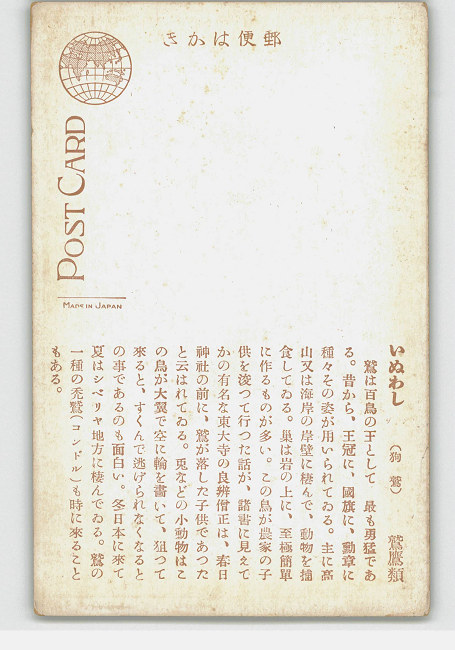 きかは便郵
POST CARD
MADE IN JAPAN
いぬわし （狗鷲） 鷲鷹類
鷲は百鳥の王として 最も勇猛であ
る。昔から、王冠に、國旗に、勳章に
種々その姿が用いられてゐる。主に高
山又は海岸の岸壁に棲んで、動物を捕
食してゐる。巣は岩の上に、至極簡單
に作るものが多い。この鳥が農家の子
供を浚つて行つた話が、諸書に見えて
かの有名な東大寺の良辨僧正は、春日
神社の前に、鷲が落した子供であつた
と云はれてゐる。兎などの小動物はこ
の鳥が大翼で空に輪を書いて、狙つて
來ると、すくんで逃げられなくなると
の事であるのも面白い。冬日本に來て
夏はシベリヤ地方に棲んでゐる。鷲の
一種の禿鷲（コンドル）も時に來ること
もある。